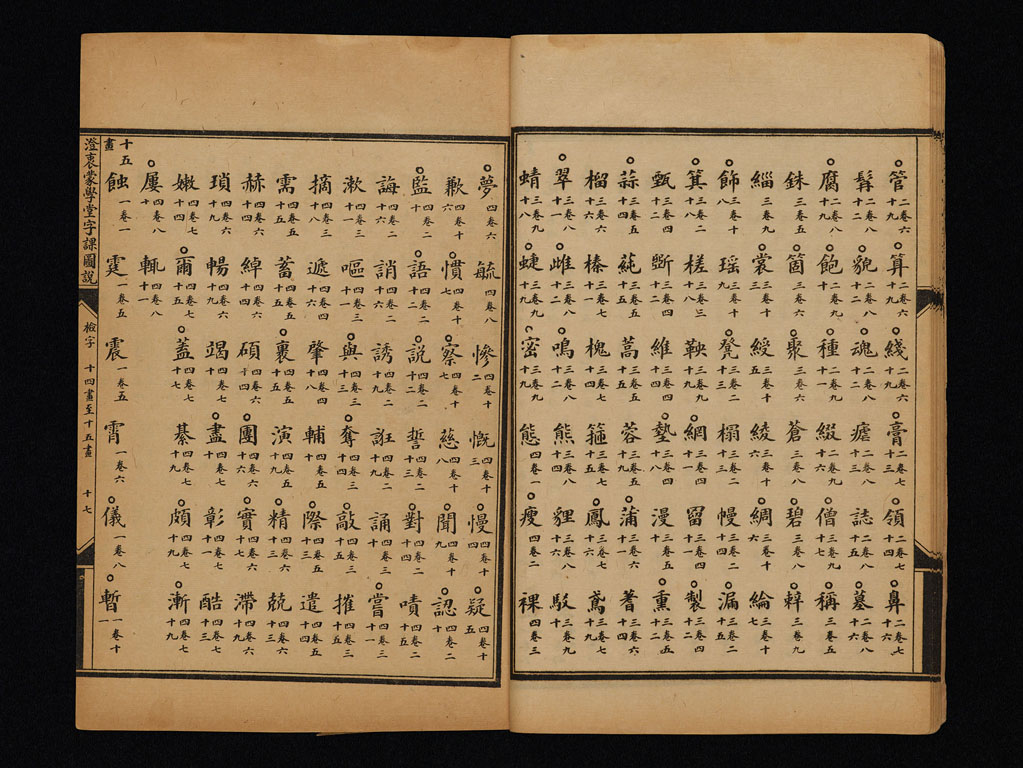 管二卷六十九 算二卷六十九 綫二卷六十九 膏二卷六十三 領二卷七十四 鼻二卷七十六
髯二卷八十二 貌二卷八十二 魂二卷八十二 瘧二卷八十三 誌二卷八十五 墓二卷八十六
腐二卷八十九 飽二卷八十九 種二卷九十一 綴二卷九十六 僧二卷九十七 稱
銖三卷五 箇三卷八 聚三卷八 蒼三卷八 碧三卷八 辢三卷九
緇三卷九 裳三卷十三 綬三卷十五 綾三卷十六 綢三卷十六 綸三卷十七
飾三卷二十八 瑤三卷二十九 凳三卷二十三 榻三卷二十三 幔三卷二十四 漏三卷二十五
箕三卷三十八 槎三卷三十八 鞅 網三卷四十一 留 製三卷四十二
甄三卷四十二 斲三卷四十二 維三卷四十四 墊三卷四十八 漫三卷五十一 熏三卷五十二
蒜三卷五十四 蒓三卷五十五 蒿三卷五十五 蓉三卷五十九 蒲三卷六十一 蓍三卷六十四
榴三卷六十六 榛三卷七十一 槐三卷七十二 箍三卷七十五 鳳三卷七十六 鳶三卷七十九
翠三卷八十一 雌三卷八十二 鳴三卷八十二 熊三卷八十四 貍三卷八十六 駁三卷九十
蜻三卷九十八 蜨三卷九十九 蜜三卷九十九 態四卷一 瘦四卷二 裸四卷三
夢四卷六 毓四卷八 慘四卷十二 慨四卷十三 慢四卷十四 疑四卷十五
歉四卷十六 慣四卷十七 察四卷十七 慈四卷十八 聞四卷十九 認四卷二十
監四卷二十 語四卷二十二 說四卷二十二 誓四卷二十三 對四卷二十四 嘖四卷二十五
誨四卷二十六 誚四卷二十六 誘四卷二十九 誑四卷二十九 誦四卷三十 嘗四卷三十一
漱四卷三十一 嘔四卷三十一 與四卷三十三 奪四卷三十四 敲四卷三十三 摧四卷三十五
摘四卷三十八 遞四卷四十六 肇四卷四十八 輔四卷五十 際四卷五十三 遣四卷五十四
需四卷五十五 蓄四卷五十五 裹四卷五十八 演四卷五十九 精四卷六十三 兢四卷六十三
赫四卷六十四 綽四卷六十四 碩四卷六十四 團四卷六十六 實四卷六十七 滯四卷六十九
瑣四卷六十九 暢四卷六十九 竭四卷七十 盡四卷七十 彰四卷七十一 酷四卷七十三
嫩四卷七十四 爾四卷七十五 蓋四卷七十七 綦四卷七十九 頗四卷七十九 漸四卷七十九
屢四卷八十 輒四卷八十一
十五畫
蝕一卷一 霆一卷五 震一卷五 霄一卷六 儀一卷八 暫一卷十一
澄衷蒙學堂字課圖說 檢字 十四畫至十五畫 十七